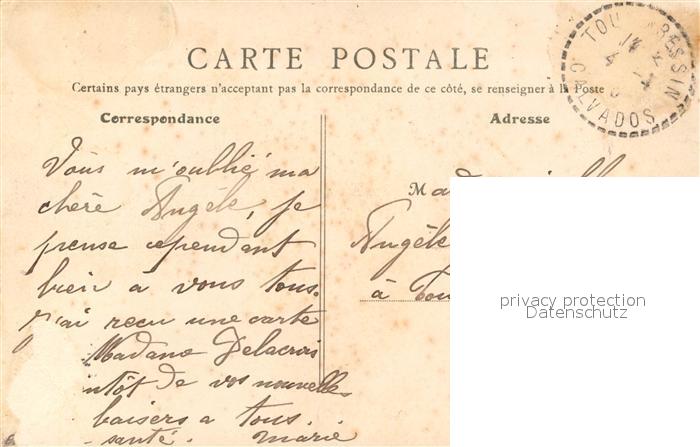 CARTE POSTALE
Certains pays étrangers n'acceptant pas la correspondance de ce côté, se renseigner à la Poste
Correspondance
Vous m'oublié ma
chère Angèle, je
pense cependant
bien à vous tous.
j'ai reçu une carte
Madame Delacroix
ntôt de vos nouvelles
baisers a tous.
santé. Marie
Adresse
Mad
Angèle
à Tou
TOU
CALVADOS
privacy protection
Datenschutz